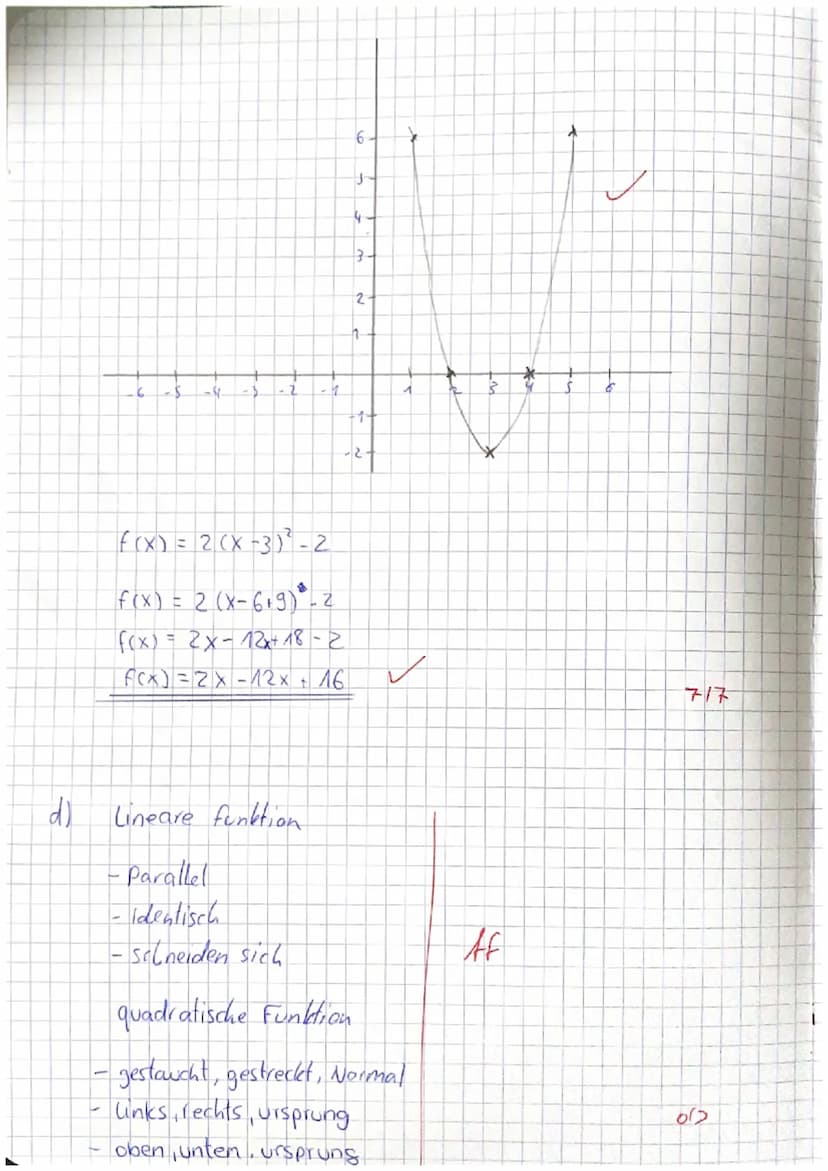 6
5
4
3
2
1
-6 -5 -4 -3 -2 -1 1 2 3 4 5 6
-1
-2
f(x) = 2(x-3)² - 2
f(x) = 2(x-6+9) - 2
f(x) = 2x - 12x + 18 - 2
f(x) = 2x - 12x + 16
7/7
d) Lineare funktion
- Parallel
- identisch
- schneiden sich
Af
quadratische Funktion
- gestaucht, gestreckt, Normal
- links, rechts, ursprung
- oben, unten, ursprung